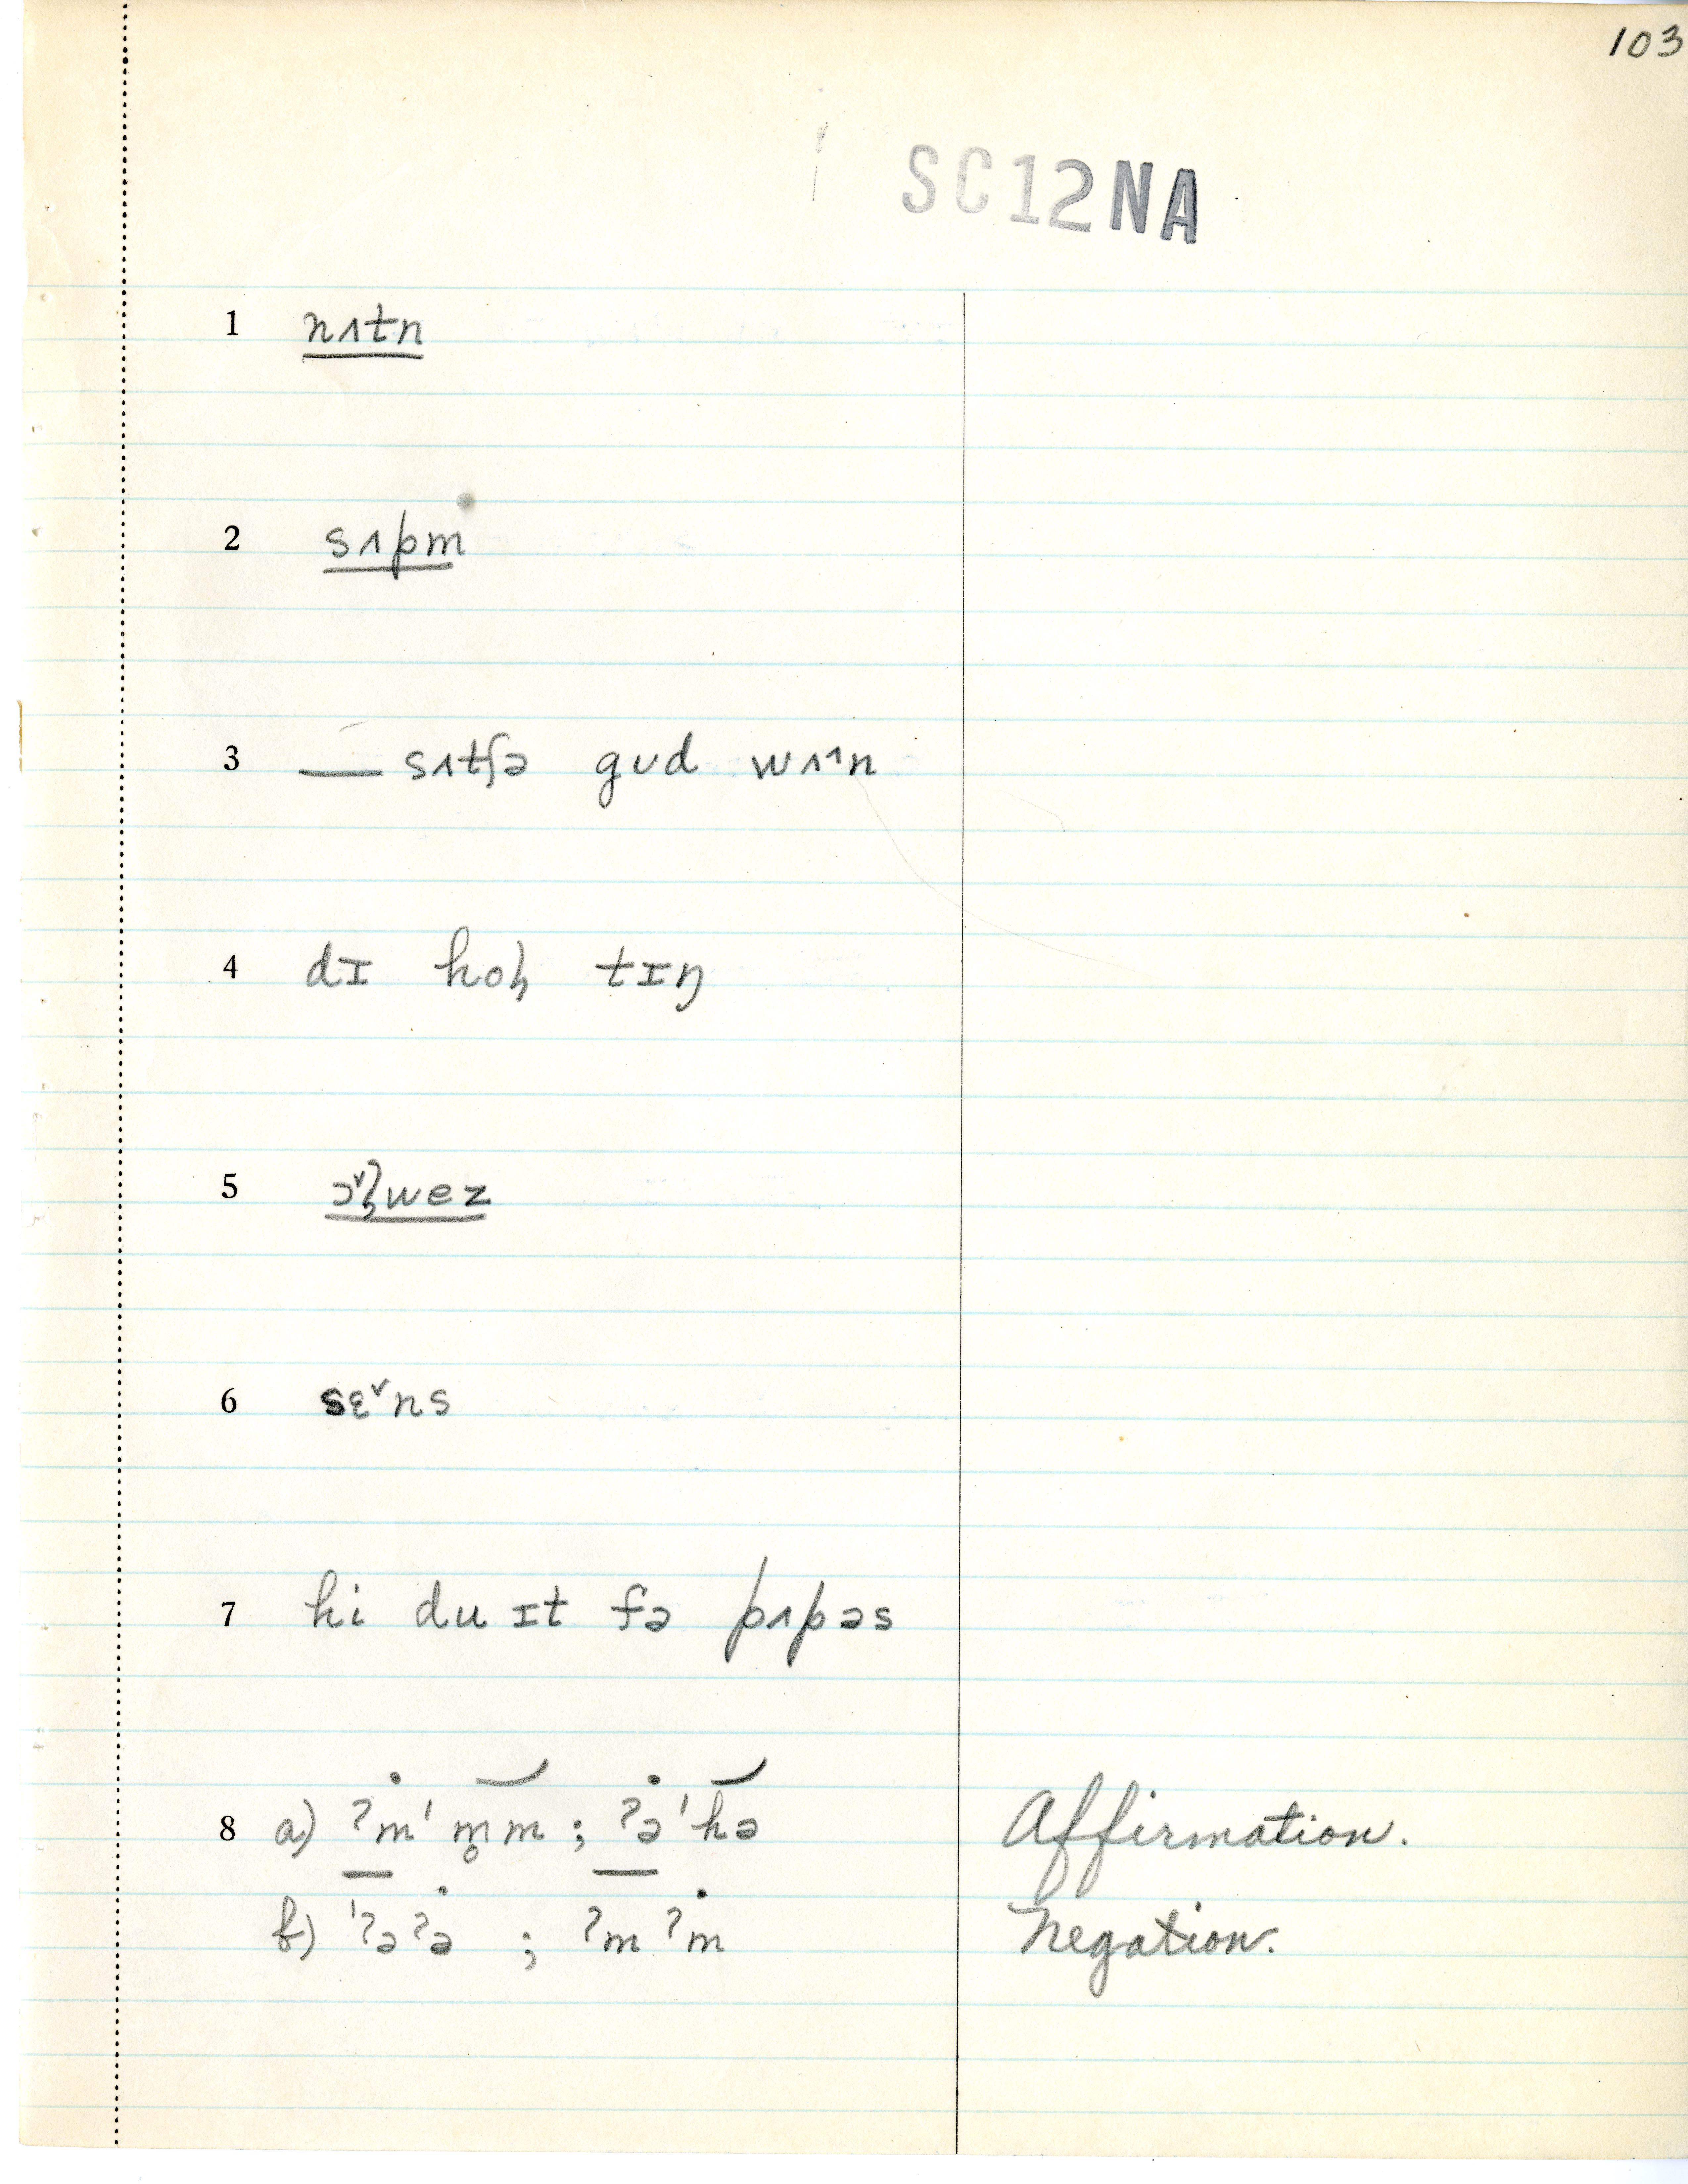 103
SC12NA
1 nʌtn
2 sʌpm
3 — sʌtʃə gʊd wʌ^n
4 dɪ hoɫ tɪŋ
5 ɔ˅ɫwez
6 sɛ˅ns
7 hi du ɪt fə pʌpəs
8 a) ʔm'm̥m ; ʔə'hə Affirmation.
b) 'ʔəʔə ; ʔmʔm Negation.